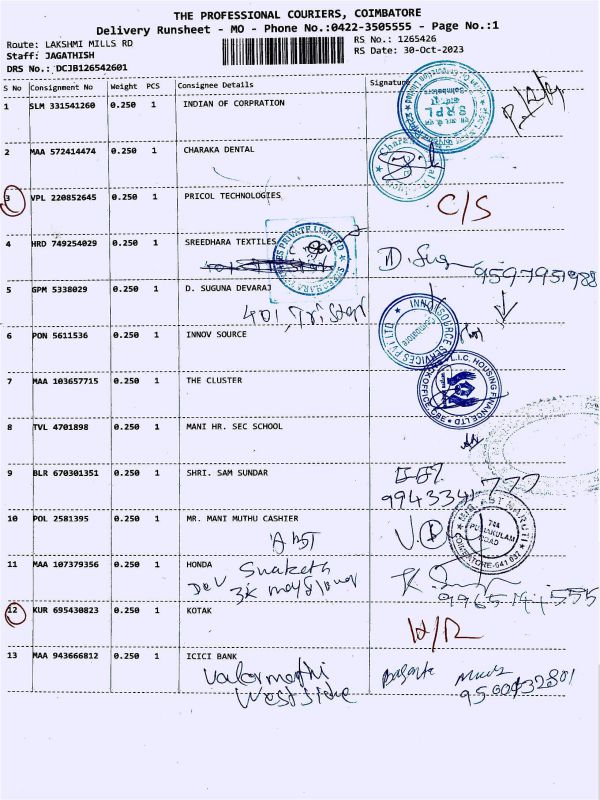 THE PROFESSIONAL COURIERS, COIMBATORE
Delivery Runsheet - MO - Phone No.:0422-3505555 - Page No.:1
Route: LAKSHMI MILLS RD
RS No.: 1265426
Staff: JAGATHISH
RS Date: 30-Oct-2023
DRS No.: DCJB126542601
S No Consignment No Weight PCS Consignee Details Signature
1 SLM 331541260 0.250 1 INDIAN OF CORPRATION
SRPL
2 MAA 572414474 0.250 1 CHARAKA DENTAL
3 VPL 220852645 0.250 1 PRICOL TECHNOLOGIES C/S
4 HRD 749254029 0.250 1 SREEDHARA TEXTILES
D. Sug 9597951988
5 GPM 5338029 0.250 1 D. SUGUNA DEVARAJ
401, Tristar
6 PON 5611536 0.250 1 INNOV SOURCE
INNOVSOURCE SERVICES PVT LTD
Coimbatore
7 MAA 103657715 0.250 1 THE CLUSTER
L.I.C. HOUSING FINANCE LTD
8 TVL 4701898 0.250 1 MANI HR. SEC SCHOOL
9 BLR 670301351 0.250 1 SHRI. SAM SUNDAR
9943341777
10 POL 2581395 0.250 1 MR. MANI MUTHU CASHIER
ABT MARUTI
744
PULIAKULAM
ROAD
COIMBATORE-641 037
11 MAA 107379356 0.250 1 HONDA
12 KUR 695430823 0.250 1 KOTAK
13 MAA 943666812 0.250 1 ICICI BANK
Valarmathi